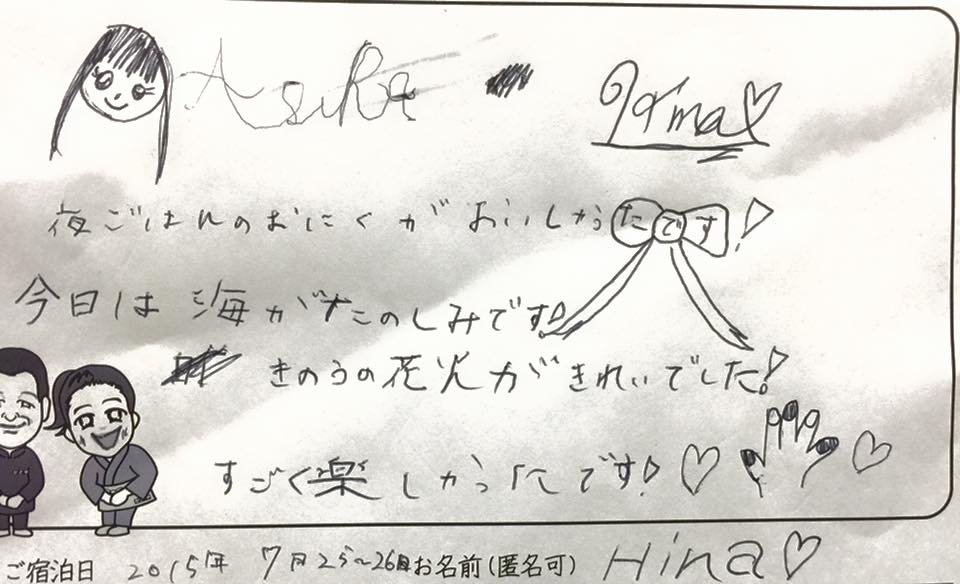 Asuka
夜ごはんのおにくがおいしかったです!
今日は海がたのしみです!
きのうの花火がきれいでした!
すごく楽しかったです!♡ ♡
ご宿泊日 2015年 7月25~26日 お名前(匿名可) Hina♡